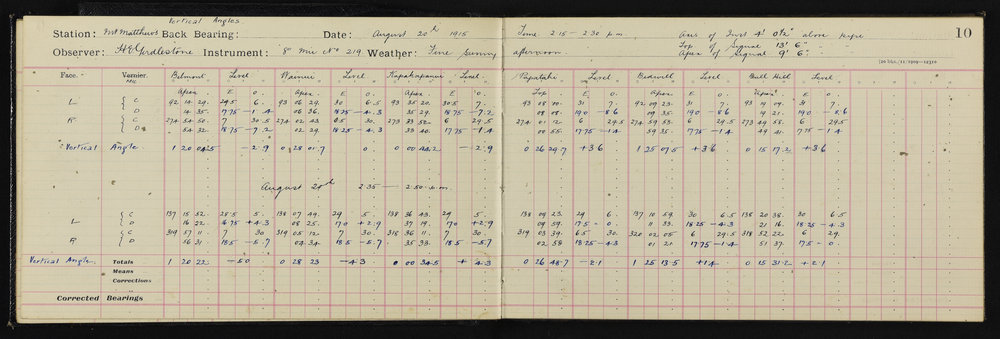 Vertical Angles
Station: Mt Matthews Back Bearing: Date: August 20th 1915 Time 2·15 - 2·30 p.m. Axis of Inst 4' 0½" above pipe 10
Top of Signal 13' 6"
Observer: H E Girdlestone Instrument: 8" Mic No 219 Weather: Fine Sunny afternoon. Apex of Signal 9' 6"
Face. Vernier. Mic Belmont Level Wainui Level Kapakapanui Level Papatahi Level Bidwill Level Bull Hill Level
Apex E O. Apex. E O. Apex E O. Top E O. Apex. E O. E O.
L { C 92 14 29. 29.5 6. 93 06 29. 30 6.5 93 35 20. 30.5 7. 93 08 10. 31 7. 92 09 23. 31 7. 93 19 09. 31 7.
D 14 35. 17.75 -1.4 06 36. 18.25 -4.3 35 29. 18.75 -7.2 08 08. 19.0 -8.6 09 35. 19.0 -8.6 19 21. 19.0 -8.6
R { C 274 54 50. 7 30.5 274 02 43. 6.5 30. 273 33 52. 6 29.5 274 01 12 6 29.5 274 59 53. 6 29.5 273 49 58. 6 29.5
D 54 32. 18.75 -7.2 02 29. 18.25 -4.3 33 40. 17.75 -1.4 00 55. 17.75 -1.4 59 35. 17.75 -1.4 49 41. 17.75 -1.4
Vertical Angle 1 20 04.5 -2.9 0 28 01.7 0. 0 00 44.2 -2.9 0 26 29.7 +3.6 1 25 07.5 +3.6 0 15 17.2 +3.6
August 20th 2.35 — 2.50 p.m.
L { C 137 15 52. 28.5 5. 138 07 49. 29 5. 138 36 43. 29 5. 138 09 23. 29 6. 137 10 59. 30 6.5 138 20 38. 30 6.5
D 16 22. 16.75 +4.3 08 25. 17.0 +2.9 37 19. 17.0 +2.9 09 59. 17.5 0. 11 33. 18.25 -4.3 21 16. 18.25 -4.3
R { C 319 57 11. 7 30 319 05 12. 7 30. 318 36 11. 7 30. 319 03 39. 6.5 30. 320 02 05. 6 29.5 318 52 22. 6 29.
D 56 31. 18.5 -5.7 04 34. 18.5 -5.7 35 33. 18.5 -5.7 02 58. 18.25 -4.3 01 21 17.75 -1.4 51 37. 17.5 0.
Vertical Angle. Totals 1 20 22 -5.0 0 28 23 -4.3 0 00 34.5 +4.3 0 26 48.7 -2.1 1 25 13.5 +1.4 0 15 31.2 +2.1
Means
Corrections
Corrected Bearings